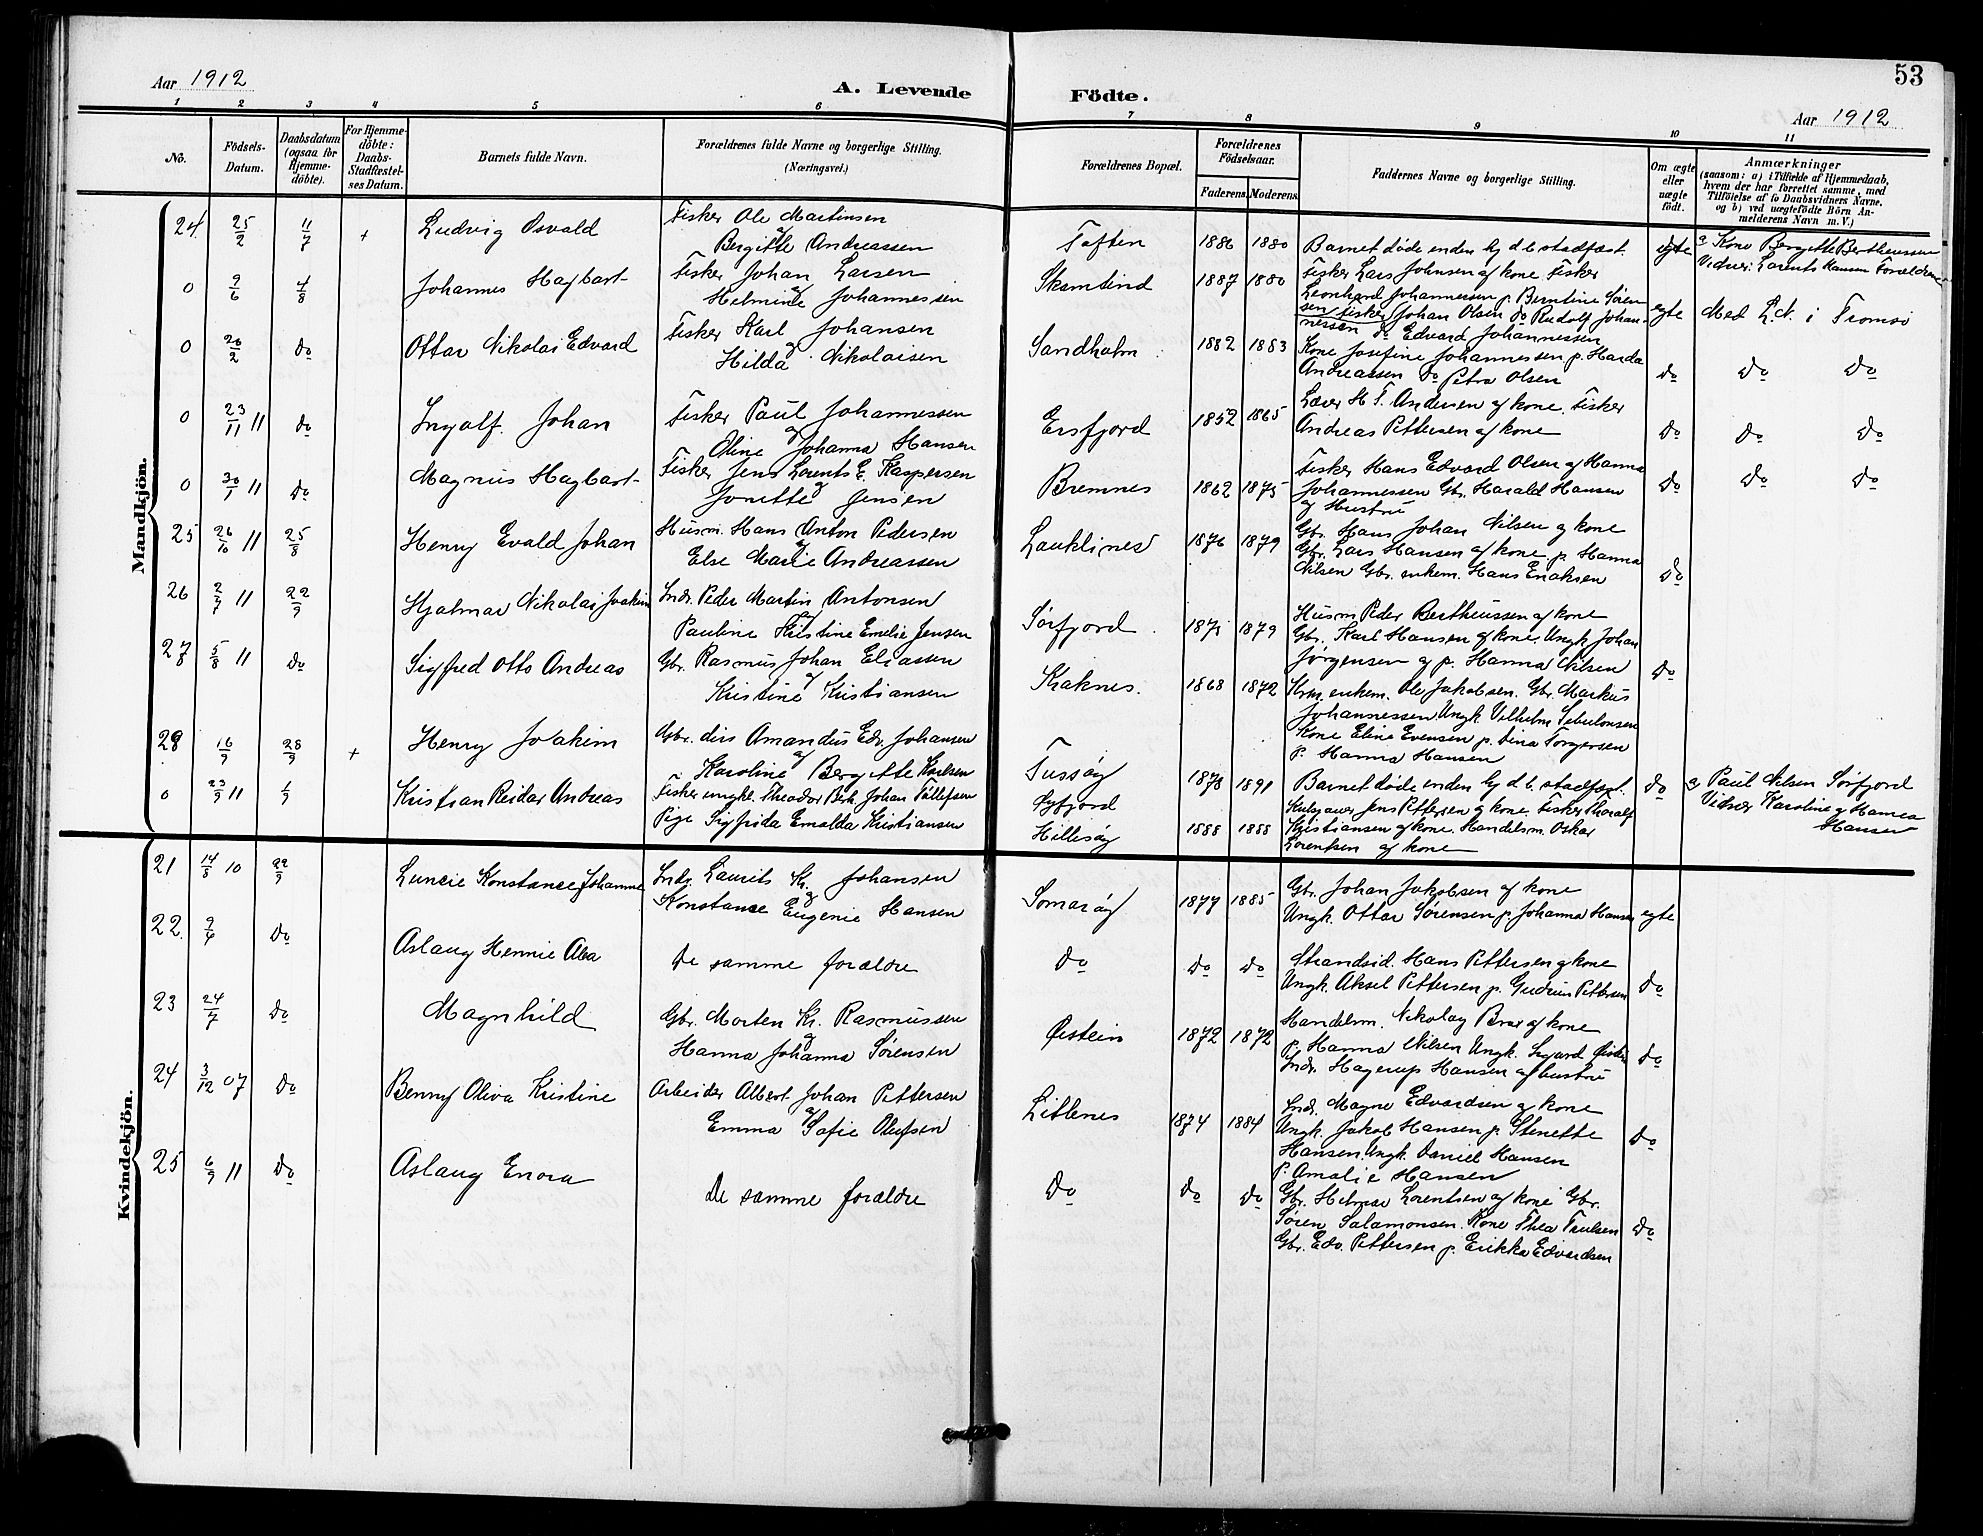 53
Aar 1912
A. Levende Födte.
Aar 1912
1 2 3 4 5 6 7 8 9 10 11
No.
Födsels-
Datum.
Daabsdatum
(ogsaa for
Hjemme-
döbte).
For Hjemme-
döbte:
Daabs-
Stadfæstel-
ses Datum.
Barnets fulde Navn.
Forældrenes fulde Navne og borgerlige Stilling.
(Næringsvei.)
Forældrenes Bopæl.
Forældrenes
Födselsaar.
Faderens. Moderens.
Faddernes Navne og borgerlige Stilling.
Om ægte
eller
uægte
födt.
Anmærkninger
(saasom: a) i Tilfælde af Hjemmedaab,
hvem der har forrettet samme, med
Tilföielse af to Daabsvidners Navne.
og b) ved uægtefödte Börn An-
melderens Navn m. V.)
Mandkjön.
24 25/2 11/7 + Ludvig Osvald
Fisker Ole Martinsen
og
Bergitte Andreassen
Toften 1886 1880
Barnet døde inden Hj d b stadfæst.
egte
a Kone Bergitte Bertheussen
Vidner: Lorents Hansen Forældrene
0 9/6 4/8 Johannes Hagbart
Fisker Johan Larsen
og
Helmine Johannessen
Skamtind 1887 1880
Fisker Lars Johnsen og kone Fisker
Leonhard Johannessen p. Berntine Søren-
sen
egte Med L.N. i Tromsö
0 20/2 Do Ottar Nikolai Edvard
Fisker Karl Johansen
og
Hilda Nikolaisen
Sandholm 1882 1883
Fisker Johan Olsen do Rudolf Johan-
nessen do Edvard Johannessen
Kone Josefine Johannessen p. Harda
Andreassen do Petra Olsen
Do Do Do
0 23/11 11 Do Ingolf Johan
Fisker Paul Johannessen
og
Oline Johanna Hansen
Ersfjord 1852 1865
Lærer H. T. Andersen og kone. Fisker
Andreas Pettersen og kone
Do Do Do
0 30/1 11 Do Magnus Hagbart
Fisker Jens Lorents E. Kaspersen
og
Jonette Jensen
Bremnes 1862 1875
Fisker Hans Edvard Olsen og Hanna
Johannessen Gbr. Harald Hansen
og Hustru
Do Do Do
25 26/10 11 25/8 Henry Evald Johan
Husm. Hans Anton Pedersen
og
Else Marie Andreassen
Lauklines 1876 1879
Gbr. Hans Johan Nilsen og kone
Gbr. Lars Hansen og kone p. Hanna
Nilsen Gbr. enkem. Hans Enoksen
Do
26 2/7 11 22/9 Hjalmar Nikolai Joakim
Indr. Peder Martin Antonsen
og
Pauline Kristine Emelie Jensen
Sørfjord 1875 1879
Husm Peder Bertheussen og kone
Gbr. Karl Hansen og kone Ungk Johan
Jørgensen og p. Hanna Nilsen
Do
27 5/8 11 Do Sigfred Otto Andreas
Gbr. Rasmus Johan Eliassen
og
Kristine Kristiansen
Kraknes. 1868 1872
enkem. Ole Jakobsen. Gbr. Markus
Johannessen Ungk Vilhelm Sebulonsen
Kone Eline Evensen p. Dina Torgersen
p. Hanna Hansen
28 16/9 28/9 + Henry Joakim
Gbr. Amandus Edv. Johansen
og
Karoline Bergitte Karlsen
Tussøy 1878 1891
Barnet døde inden Hj d b. stadfæst.
Do
a Paul Nilsen Sørfjord
Vidner Karoline og Hanna
Hansen
0 23/9 11 1/9 Kristian Reidar Andreas
Fisker ungk. Theodor Berh Johan Tollefsen
Pige Sigfrida Emalda Kristiansen
Lyfjord
Hillesøy 1888 1888
Jens Pettersen og kone. Fisker Thoralf
Kristiansen og kone. Handelsm. Oskar
Lorentsen og kone
Kvindekjön.
21 14/8 10 22/9 Luncie Konstance Johanne
Indr. Laurits Kr. Johansen
og
Konstance Eugenie Hansen
Somarøy 1877 1885
Gbr. Johan Jakobsen og kone
Ungk. Ottar Sørensen p. Johanna Hansen
egte
22. 9/4 Do Aslaug Hennie Alea
De samme forældre
Do Do Do
Strandsid. Hans Pettersen og kone
Ungk. Aksel Pettersen p. Gudrun Pettersen
Do
23 24/7 Do Magnhild
Gbr. Morten Kr. Rasmussen
og
Hanna Johanna Sørensen
Øistein 1872 1872
Handelsm. Nikolay Brox og kone
p. Hanna Nilsen Ungk. Sigard
Indr. Hagerup Hansen og hustru
Do
24 3/12 07 Do Benny Oliva Kristine
Arbeider Albert Johan Pettersen
og
Emma Sofie Olufsen
Litlenes 1874 1884
Indr. Magne Edvardsen og kone
Ungk. Jakob Hansen p. Stenette
Hansen. Ungk. Daniel Hansen
p. Amalie Hansen
Do
25 6/9 11 Do Aslaug Enora
De samme forældre
Do Do Do
Gbr. Helmer Lorentsen og kone Gbr.
Søren Salamonsen. Kone Thea Trulsen
Gbr. Edv. Pettersen p. Erikka Edvardsen
Do